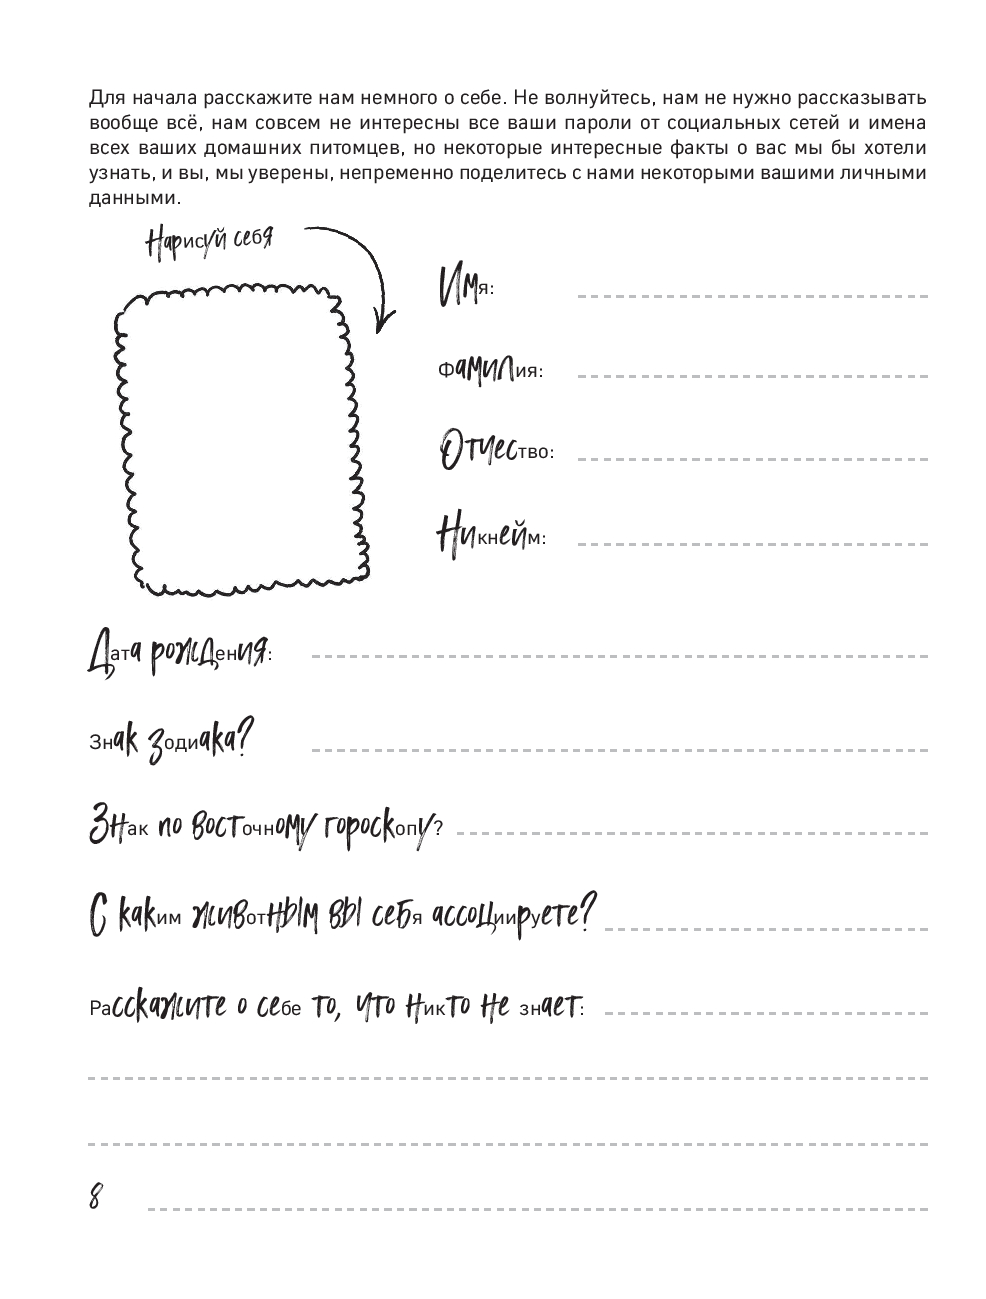 Для начала расскажите нам немного о себе. Не волнуйтесь, нам не нужно рассказывать
вообще всё, нам совсем не интересны все ваши пароли от социальных сетей и имена
всех ваших домашних питомцев, но некоторые интересные факты о вас мы бы хотели
узнать, и вы, мы уверены, непременно поделитесь с нами некоторыми вашими личными
данными.
Нарисуй себя
Имя:
Фамилия:
Отчество:
Никнейм:
Дата рождения:
Знак зодиака?
Знак по восточному гороскопу?
С каким животным вы себя ассоциируете?
Расскажите о себе то, что никто не знает:
8